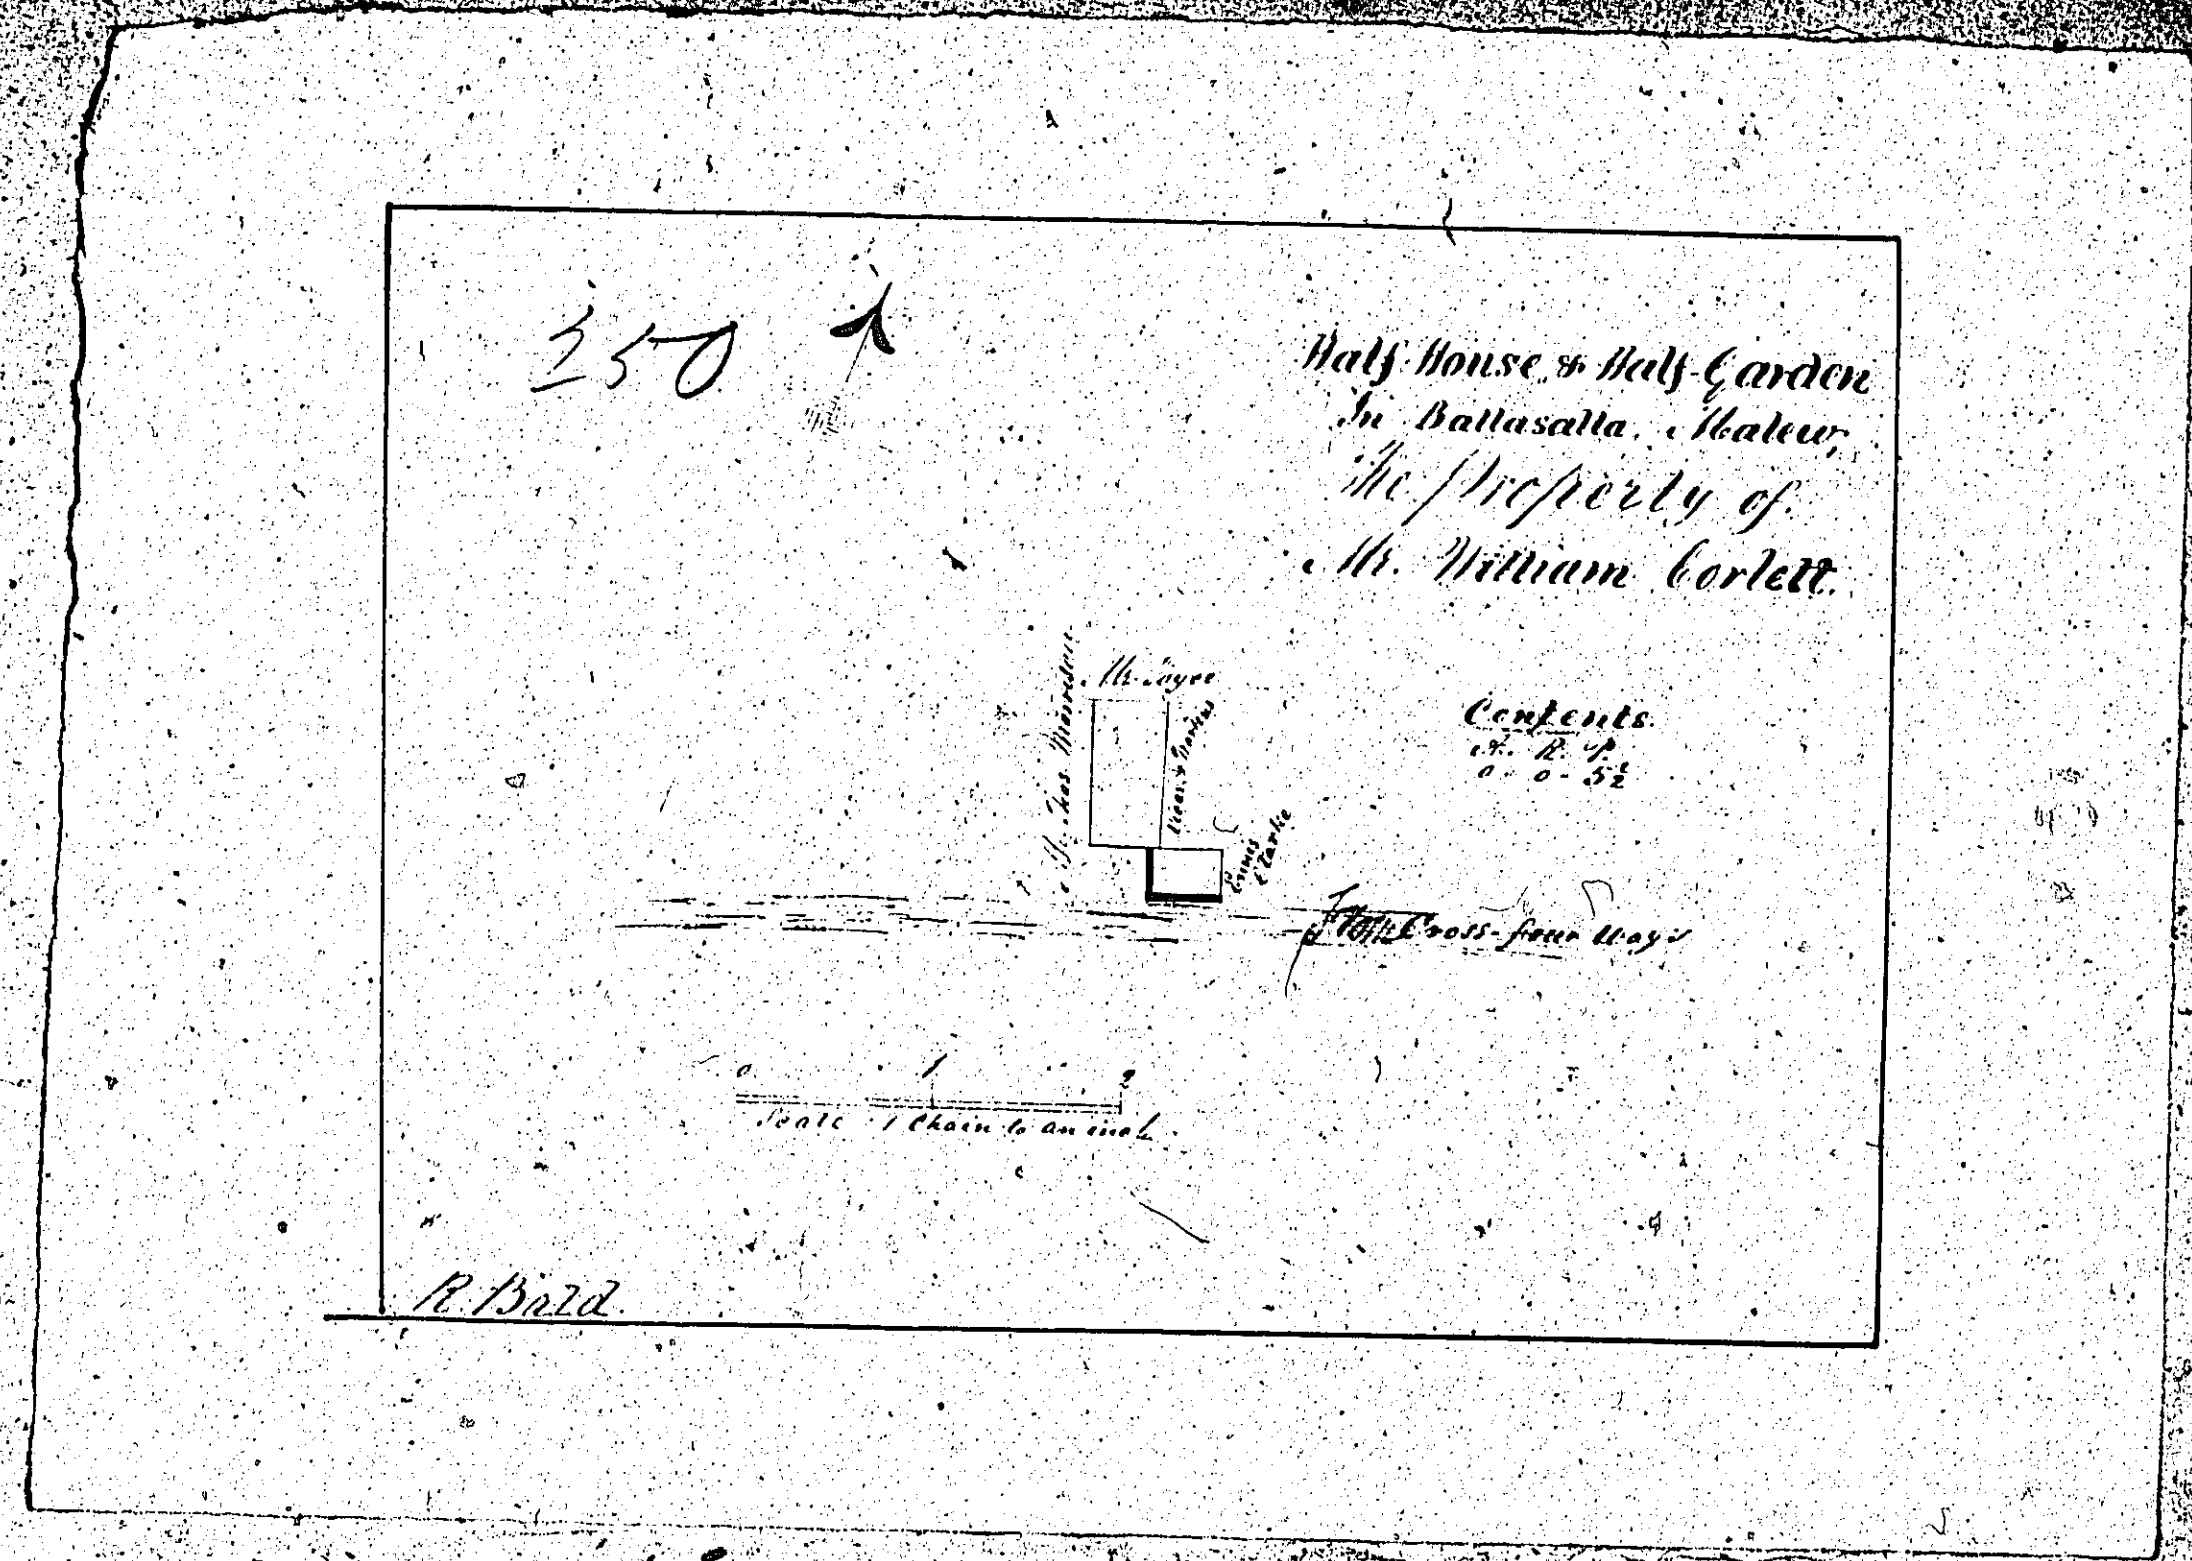 250
Half House & Half Garden
In Ballasalla, Malew,
The Property of
Mr. William Corlett.
Mr.
Mr. Thos
Vicar & Wardens
Ennis
Clarke
Contents.
A. R. P.
0 - 0 - 5½
From Cross-four ways
0 1 2
Scale 1 Chain to an inch
R. Baird.